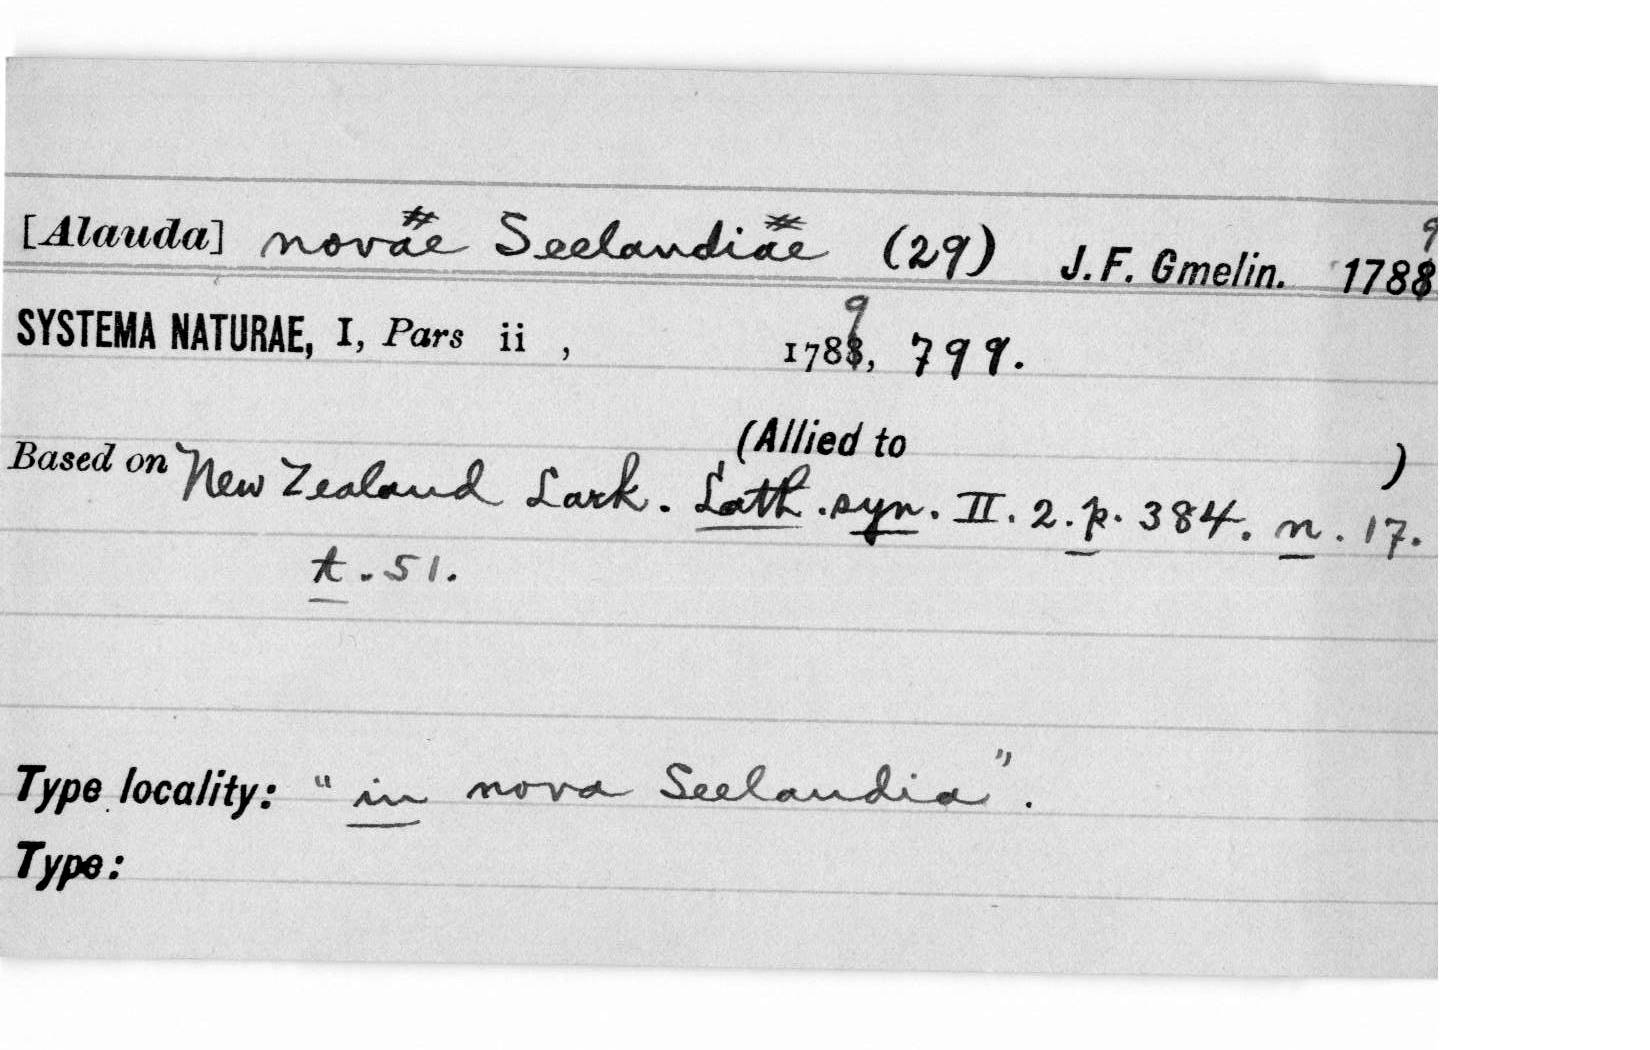 [Alauda] novae Seelandiae (29) J. F. Gmelin. 1789
SYSTEMA NATURAE, I, Pars ii , 1789, 799.
(Allied to )
Based on New Zealand Lark. Lath. syn. II. 2. p. 384. n. 17.
t. 51.
Type locality: "in nova Seelandia".
Type: